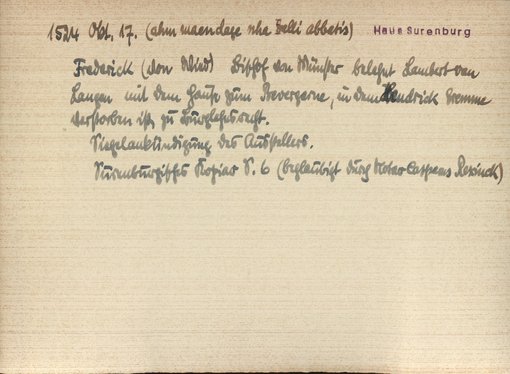 1524 Okt. 17. (ahm maendage nha Galli abbatis) Haus Surenburg
Frederick (von Wied) Bischof von Münster belehnt Lambert von
Langen mit dem Hause zum Bevergerne, in dem Hendrick Bremme
verstorben ist, zu Burglehnrecht.
Siegelankündigung des Ausstellers.
Surenburgisches Kopiar S. 6 (beglaubigt durch Notar Casparus Rexinck)